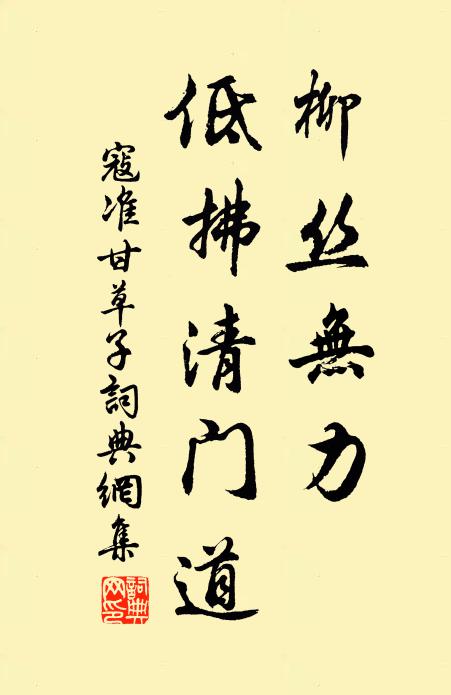 柳丝無力
低拂清门道
寇准甘草子詞典網集
詞典
网印